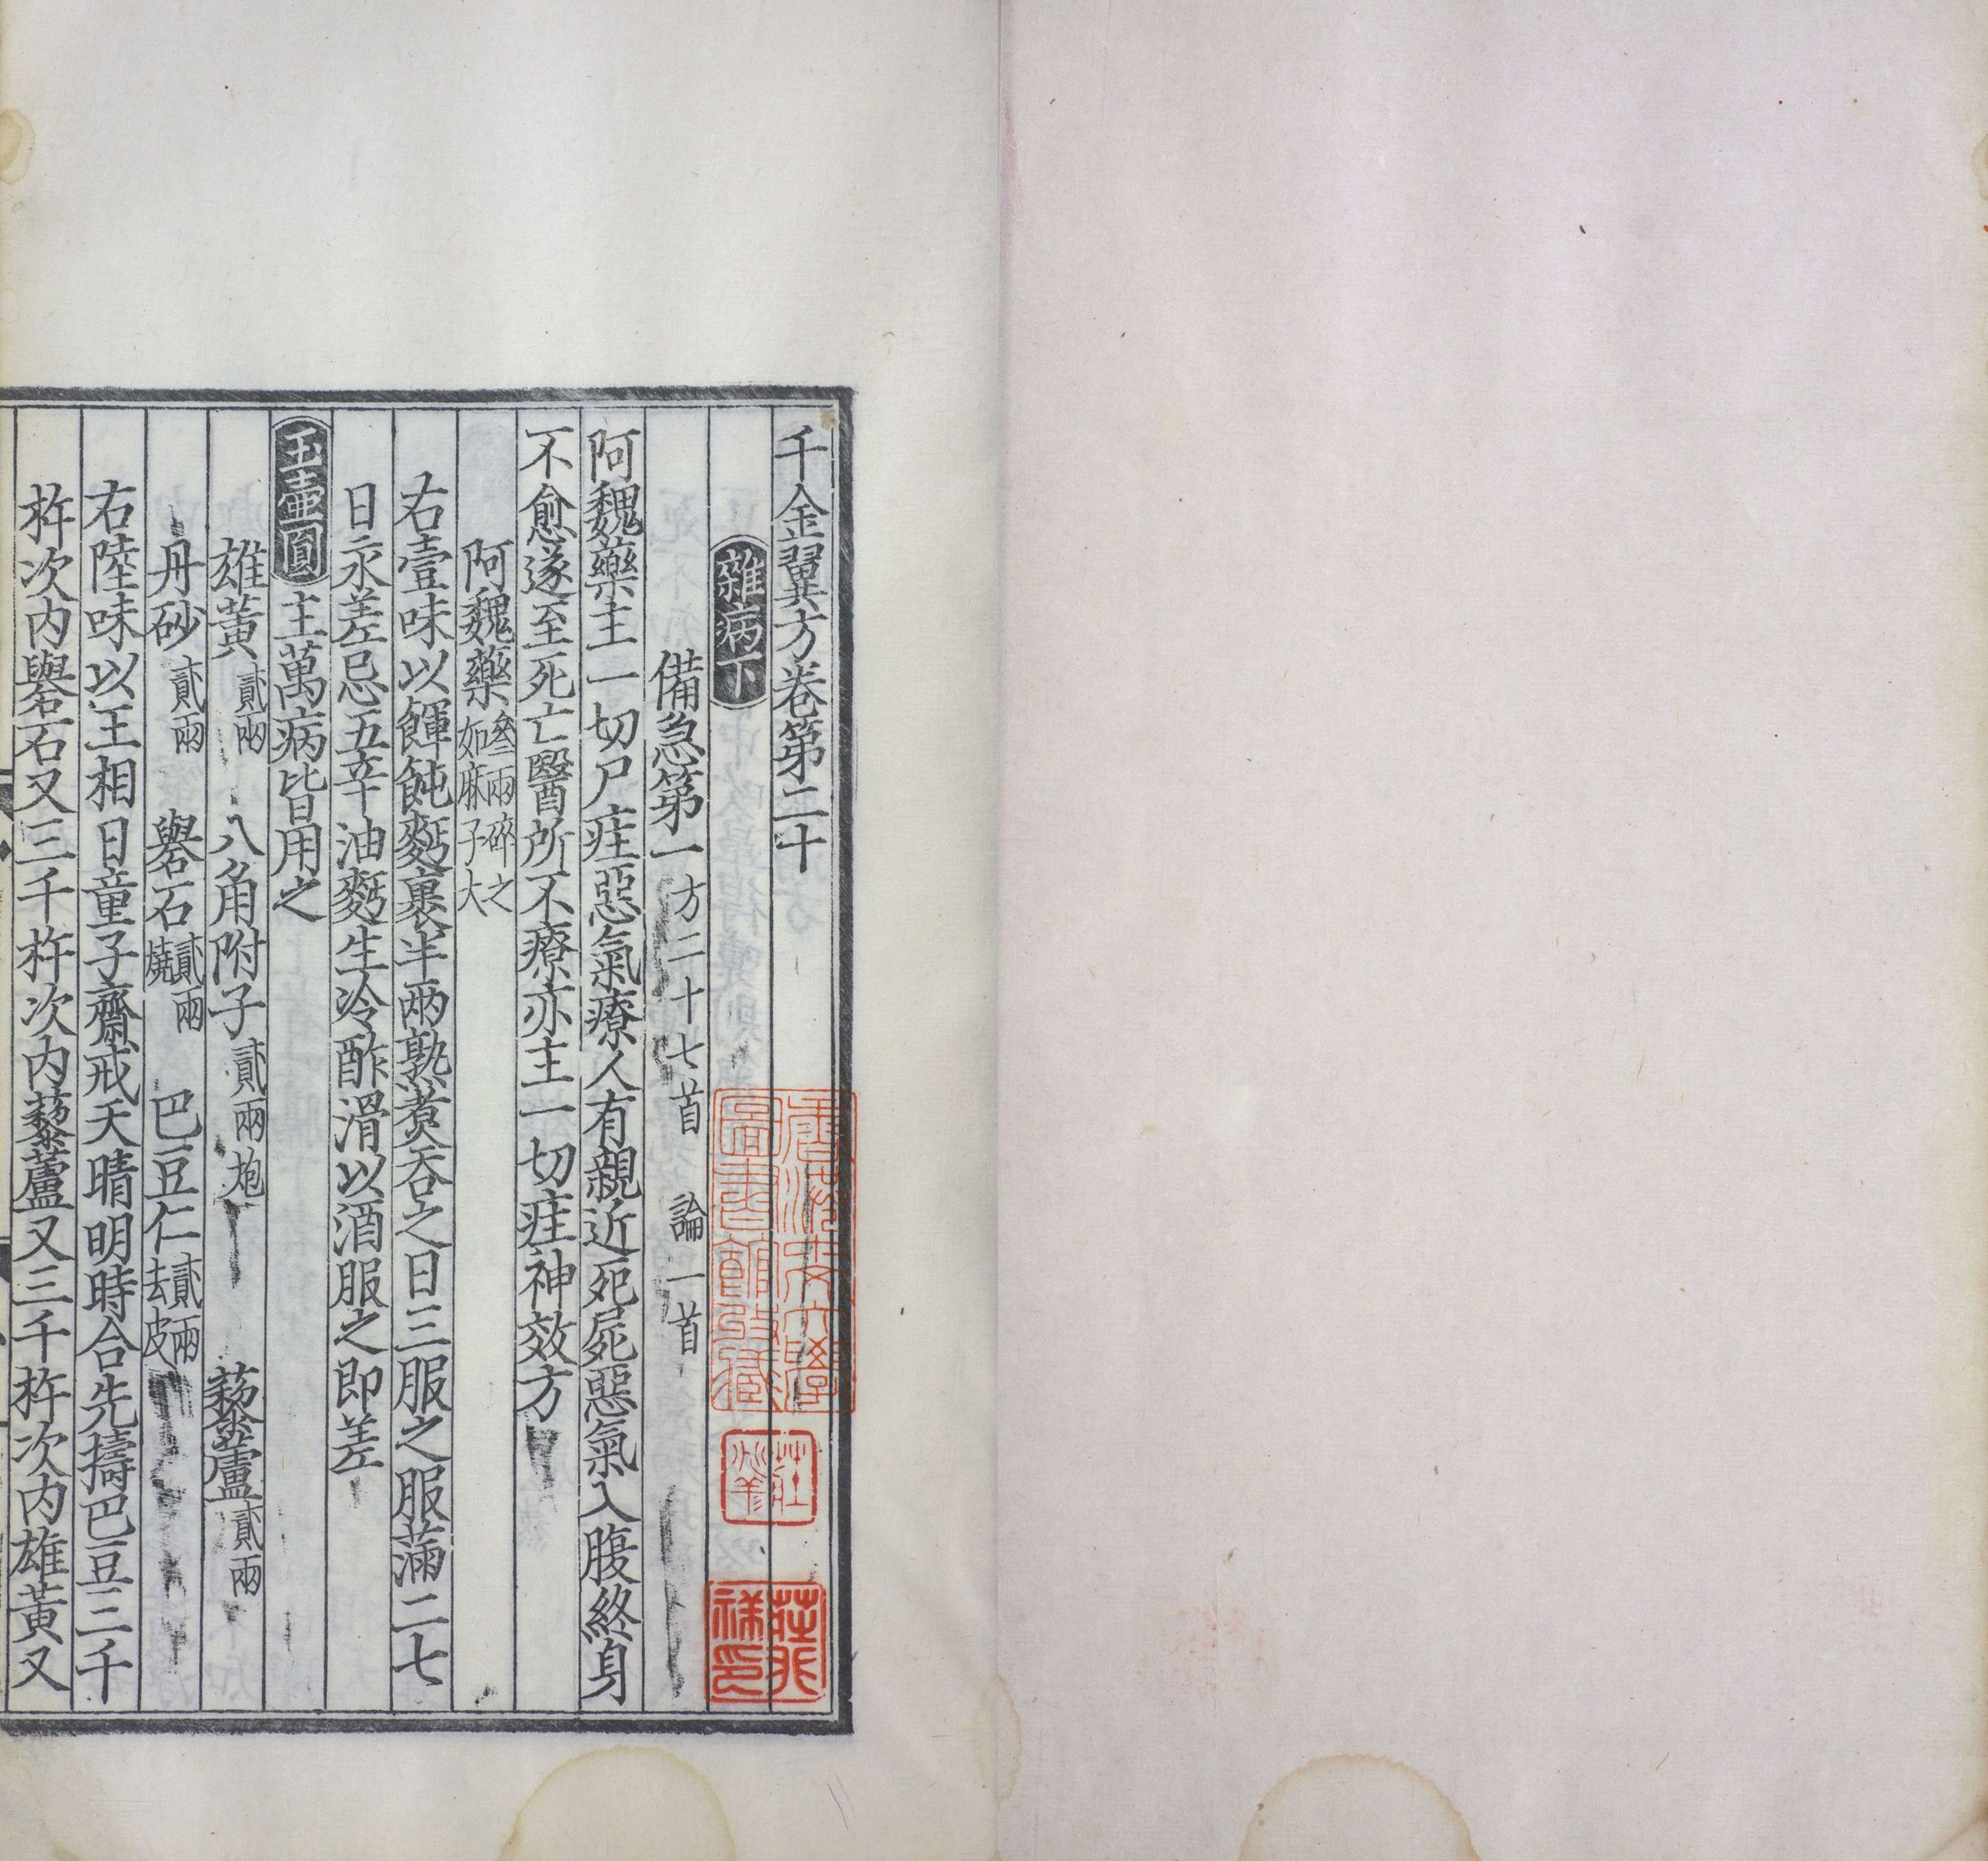 千金翼方卷第二十
雜病下
備急第一方二十七首 論一首
阿魏藥主一切尸疰惡氣療人有親近死屍惡氣入腹終身
不愈遂至死亡醫所不療亦主一切疰神效方
阿魏藥叁兩碎之如麻子大
右壹味以餫飩麫裹半兩熟煑吞之日三服之服滿二七
日永差忌五辛油麫生冷酢滑以酒服之即差
玉壺圓主萬病皆用之
雄黃貳兩 八角附子貳兩炮 藜蘆貳兩
丹砂貳兩 礜石貳兩燒 巴豆仁貳兩去皮
右陸味以王相日童子齋戒天晴明時合先擣巴豆三千
杵次內礜石又三千杵次內藜蘆又三千杵次內雄黃又
圖書館
莊